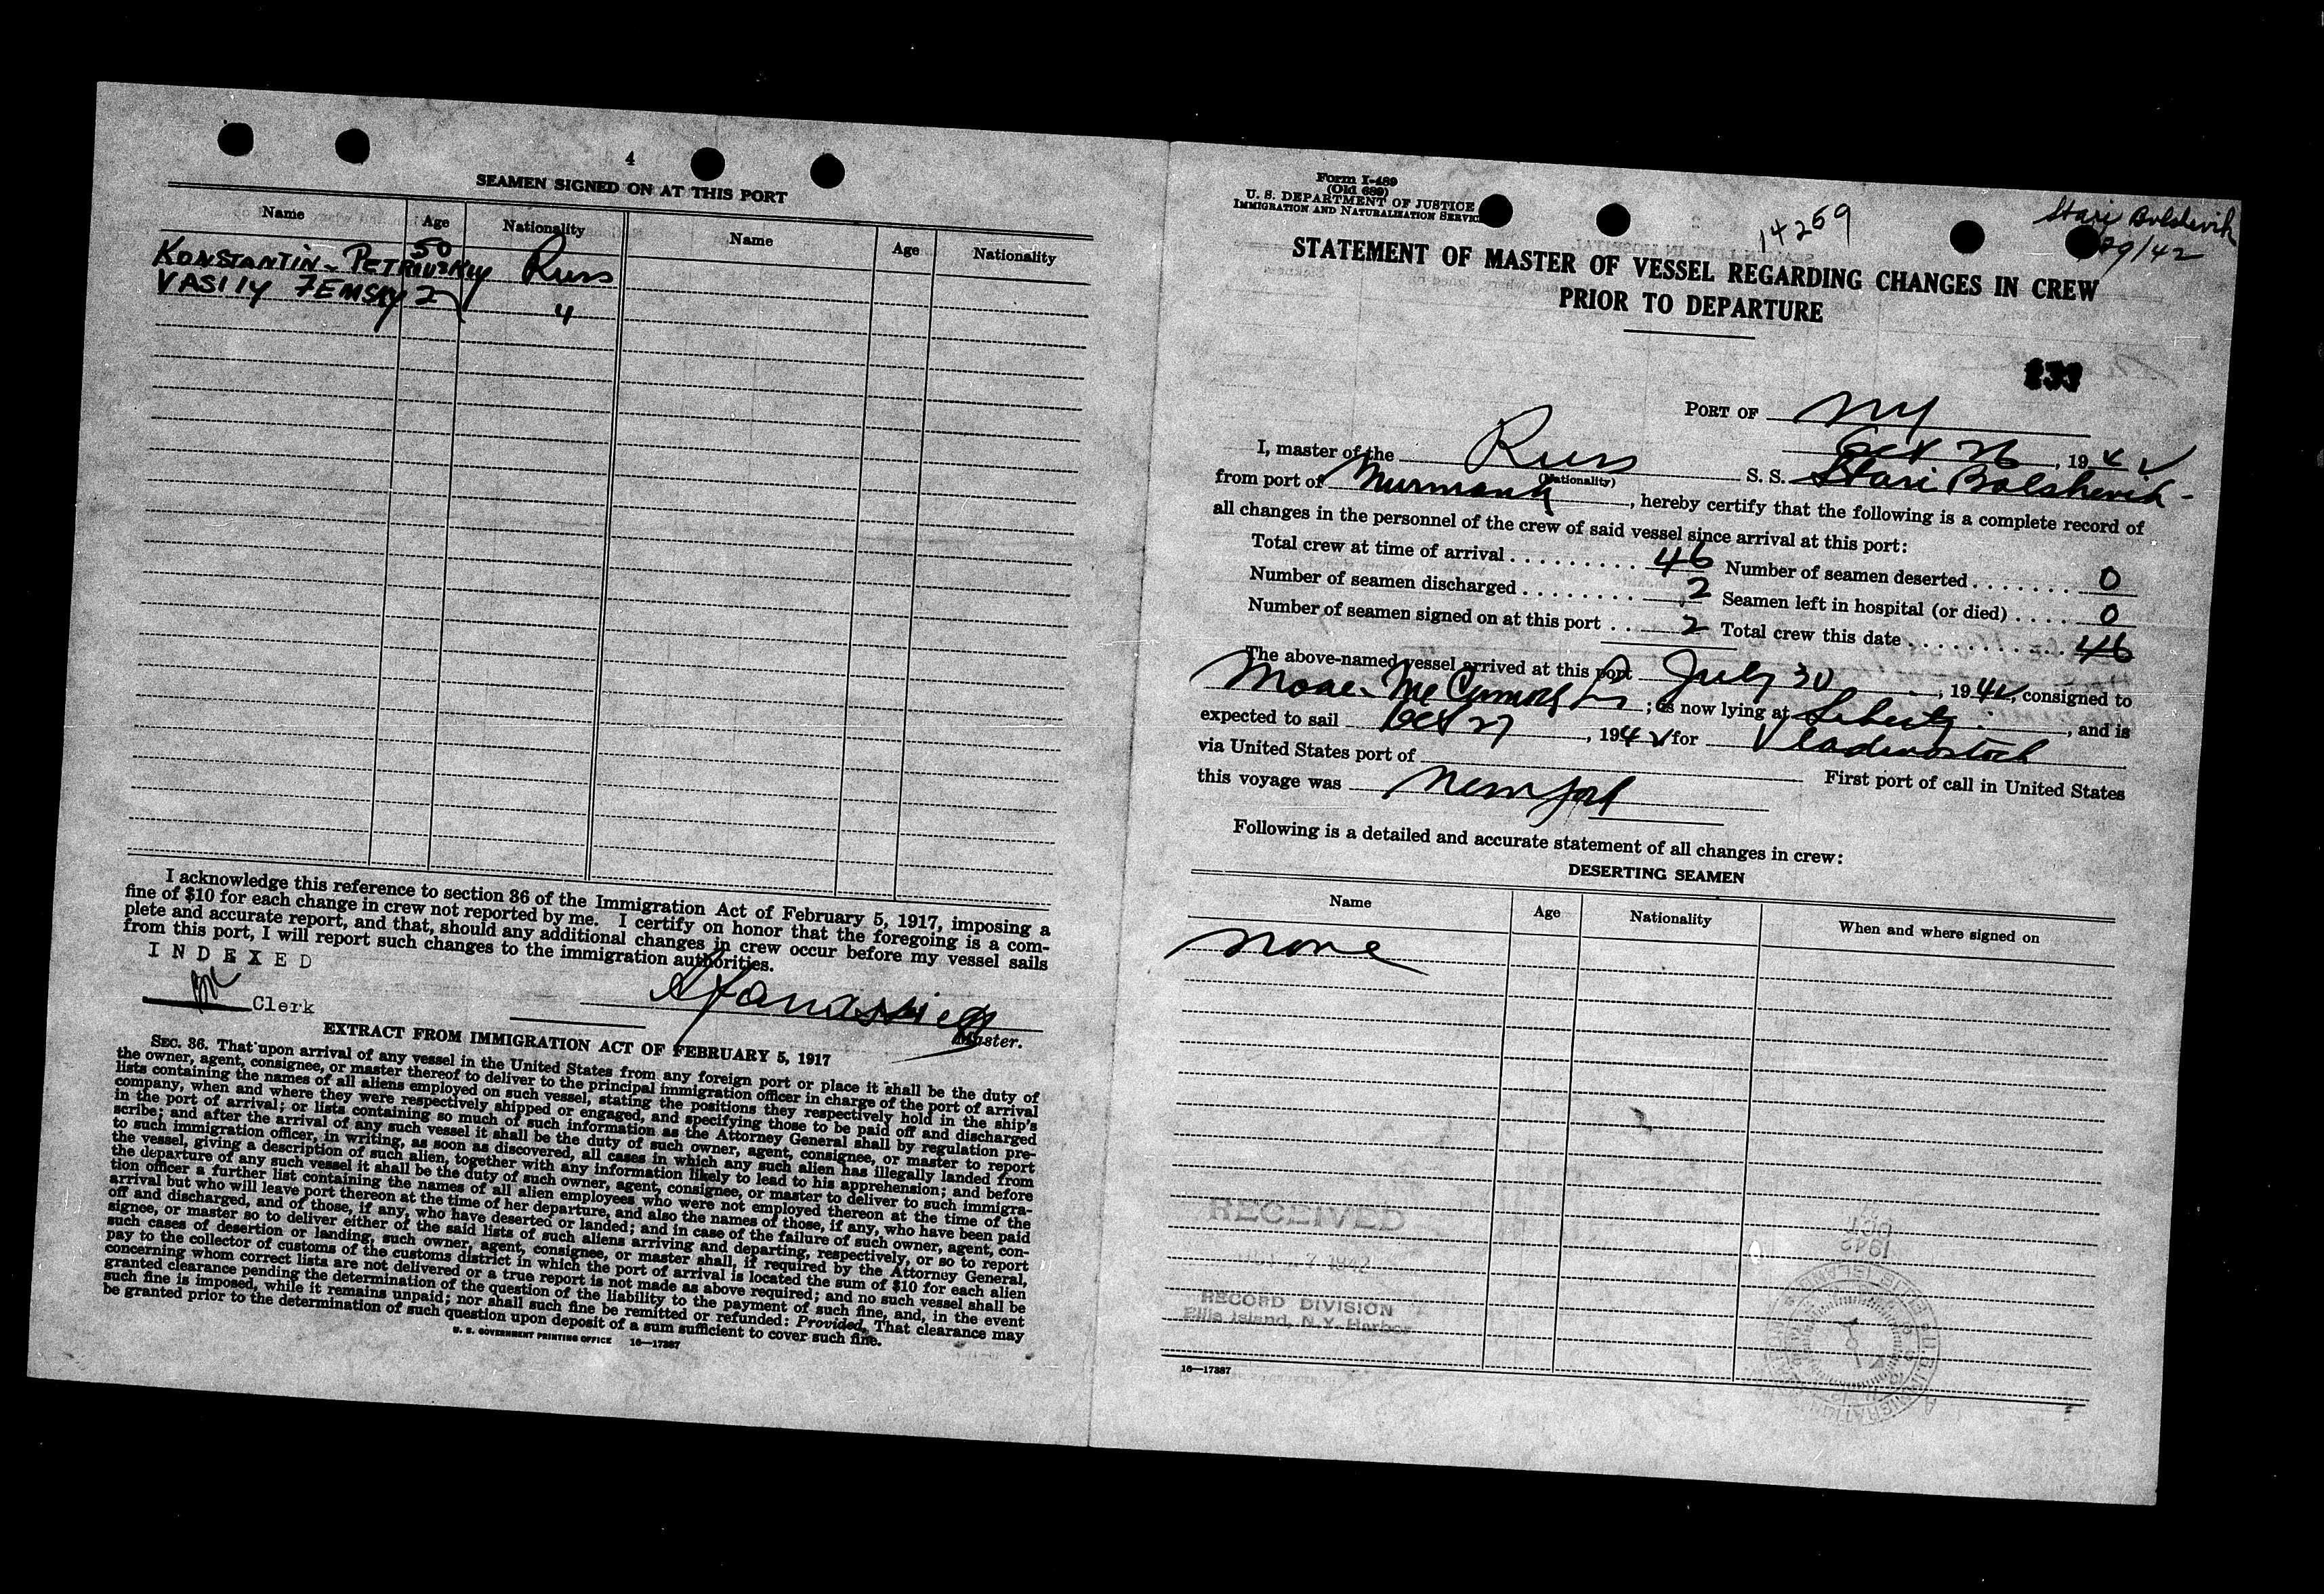 4
SEAMEN SIGNED ON AT THIS PORT
Name Age Nationality Name Age Nationality
KONSTANTIN - PETROVSKIY 50 Russ
VASILY ZEMSKY
I acknowledge this reference to section 36 of the Immigration Act of February 5, 1917, imposing a
fine of $10 for each change in crew not reported by me. I certify on honor that the foregoing is a com-
plete and accurate report, and that, should any additional changes in crew occur before my vessel sails
from this port, I will report such changes to the immigration authorities.
INDEXED
Clerk
Master.
EXTRACT FROM IMMIGRATION ACT OF FEBRUARY 5, 1917
SEC. 36. That upon arrival of any vessel in the United States from any foreign port or place it shall be the duty of
the owner, agent, consignee, or master thereof to deliver to the principal immigration officer in charge of the port of arrival
lists containing the names of all aliens employed on such vessel, stating the positions they respectively hold in the ship's
company, when and where they were respectively shipped or engaged, and specifying those to be paid off and discharged
in the port of arrival; or lists containing so much of such information as the Attorney General shall by regulation pre-
scribe; and after the arrival of any such vessel it shall be the duty of such owner, agent, consignee, or master to report
to such immigration officer, in writing, as soon as discovered, all cases in which any such alien has illegally landed from
the vessel, giving a description of such alien, together with any information likely to lead to his apprehension; and before
the departure of any such vessel it shall be the duty of such owner, agent, consignee, or master to deliver to such immigra-
tion officer a further list containing the names of all alien employees who were not employed thereon at the time of the
arrival but who will leave port thereon at the time of her departure, and also the names of those, if any, who have been paid
off and discharged, and of those, if any, who have deserted or landed; and in case of the failure of such owner, agent, con-
signee, or master so to deliver either of the said lists of such aliens arriving and departing, respectively, or so to report
such cases of desertion or landing, such owner, agent, consignee, or master shall, if required by the Attorney General,
pay to the collector of customs of the customs district in which the port of arrival is located the sum of $10 for each alien
concerning whom correct lists are not delivered or a true report is not made as above required; and no such vessel shall be
granted clearance pending the determination of the question of the liability to the payment of such fine, and, in the event
such fine is imposed, while it remains unpaid; nor shall such fine be remitted or refunded: Provided, That clearance may
be granted prior to the determination of such question upon deposit of a sum sufficient to cover such fine.
U. S. GOVERNMENT PRINTING OFFICE 16—17387
Form I-489
(Old 689)
U. S. DEPARTMENT OF JUSTICE
IMMIGRATION AND NATURALIZATION SERVICE
14259
Stari Bolshevik
29/42
STATEMENT OF MASTER OF VESSEL REGARDING CHANGES IN CREW
PRIOR TO DEPARTURE
233
PORT OF NY
Oct 26, 1942
I, master of the Russ S. S. Stari Bolshevik
(Nationality)
from port of Murmansk, hereby certify that the following is a complete record of
all changes in the personnel of the crew of said vessel since arrival at this port:
Total crew at time of arrival 46 Number of seamen deserted 0
Number of seamen discharged 2 Seamen left in hospital (or died) 0
Number of seamen signed on at this port 2 Total crew this date 46
The above-named vessel arrived at this port July 30, 1942, consigned to
Moore-McCormack Ln; is now lying at Liberty, and is
expected to sail Oct 27, 1942 for Vladivostock
via United States port of First port of call in United States
this voyage was New York
Following is a detailed and accurate statement of all changes in crew:
DESERTING SEAMEN
Name Age Nationality When and where signed on
none
RECEIVED
7 1942
RECORD DIVISION
Ellis Island, N.Y. Harbor
16—17387